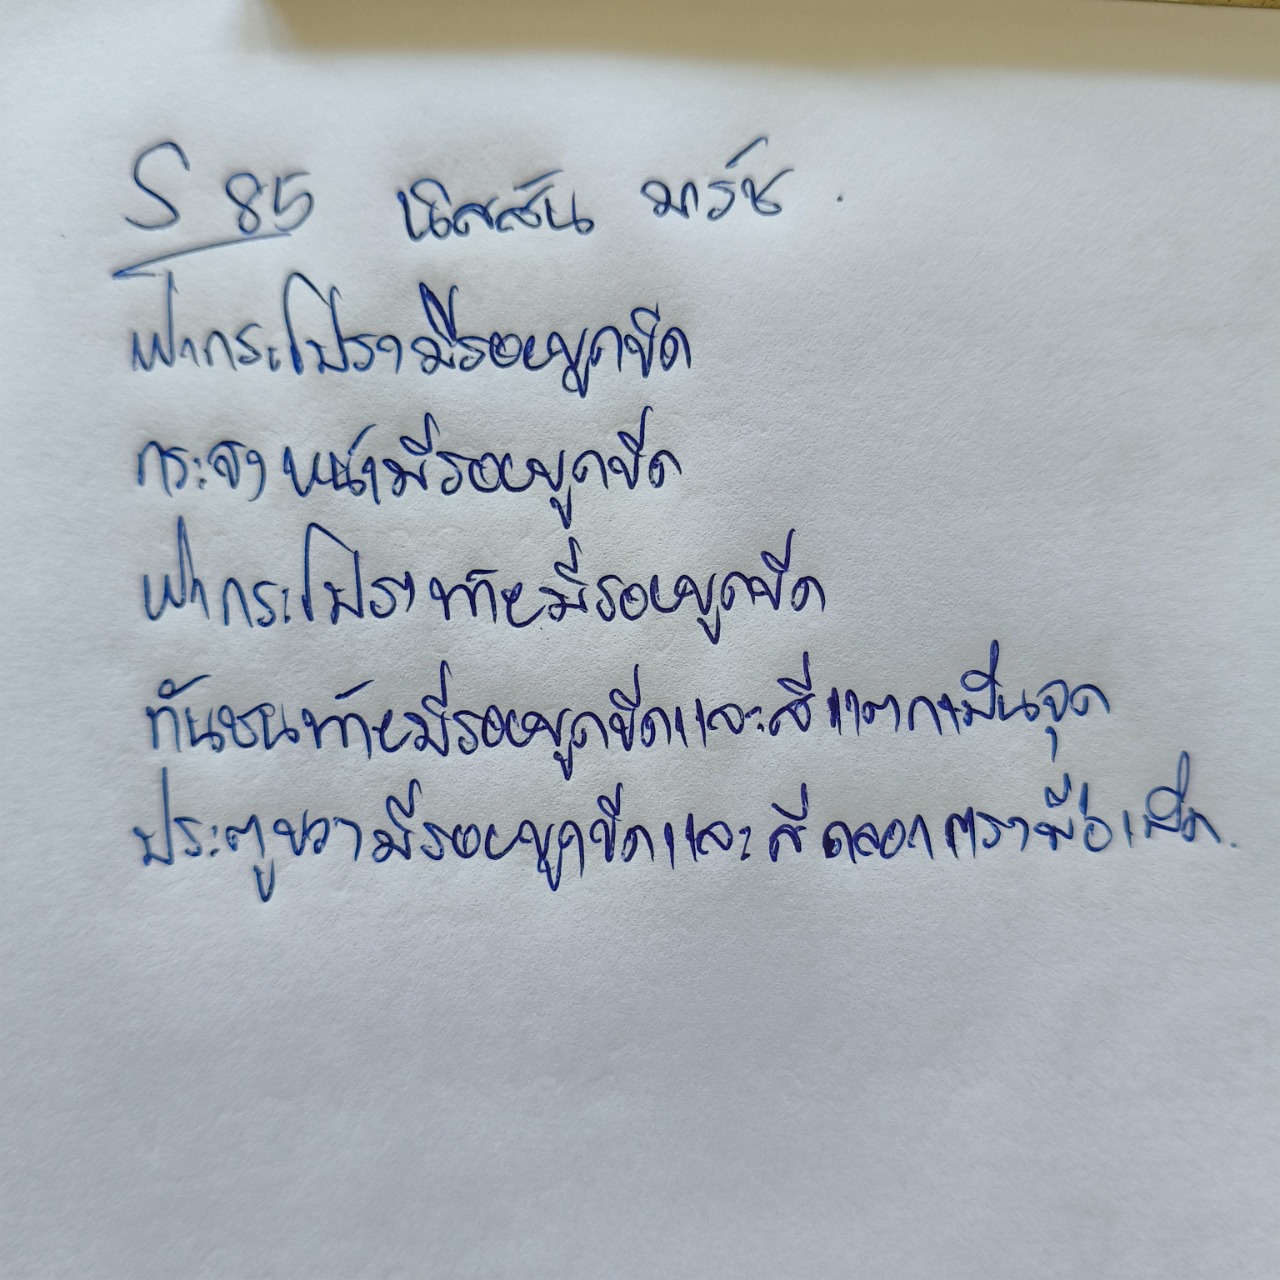 S 85 นิสสัน มาร์ช.
ฝากระโปรงมีรอยขูดขีด
กระจังหน้ามีรอยขูดขีด
ฝากระโปรงท้ายมีรอยขูดขีด
กันชนท้ายมีรอยขูดขีดและสีแตกเป็นจุด
ประตูขวามีรอยขูดขีดและสีถลอกตรงมือเปิด.